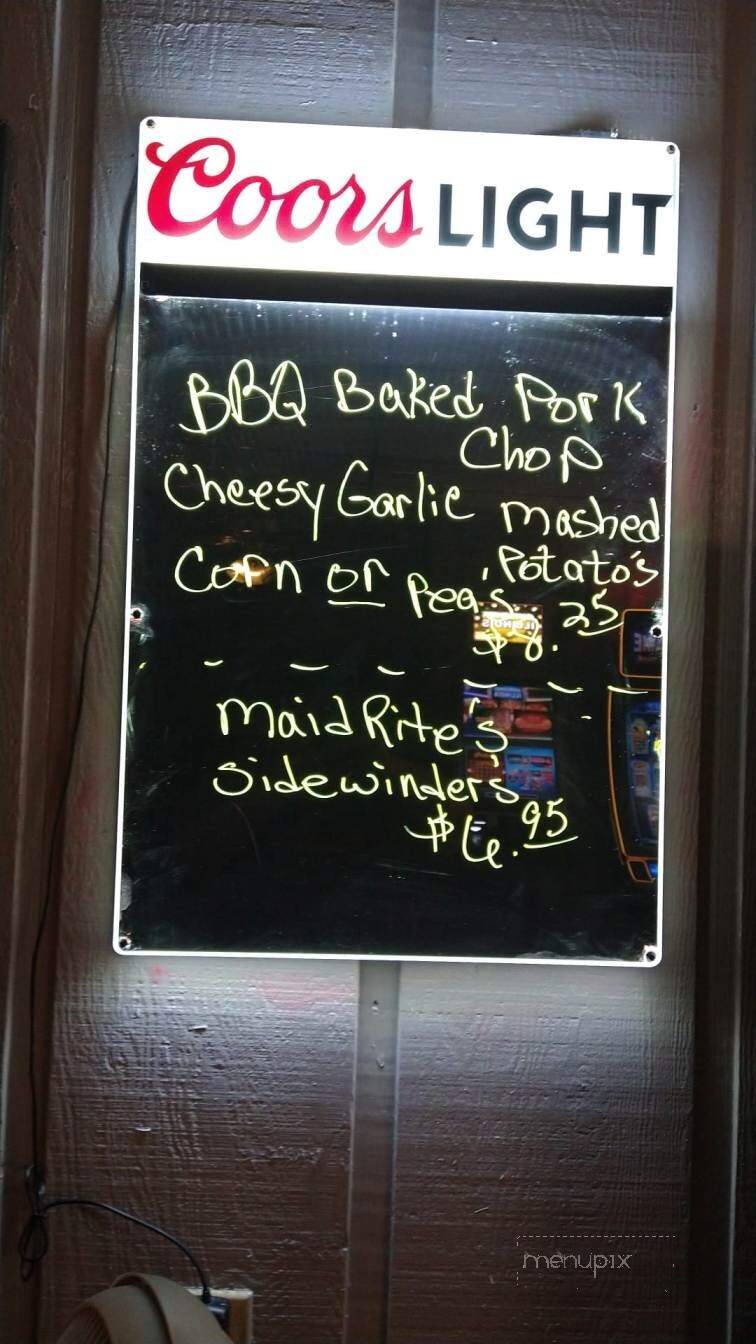 Coors LIGHT
BBQ Baked Pork
Chop
Cheesy Garlic mashed
Potato's
Corn or Peas
$8.25
- - - - - -
MaidRite's
Sidewinders
$6.95
menupix